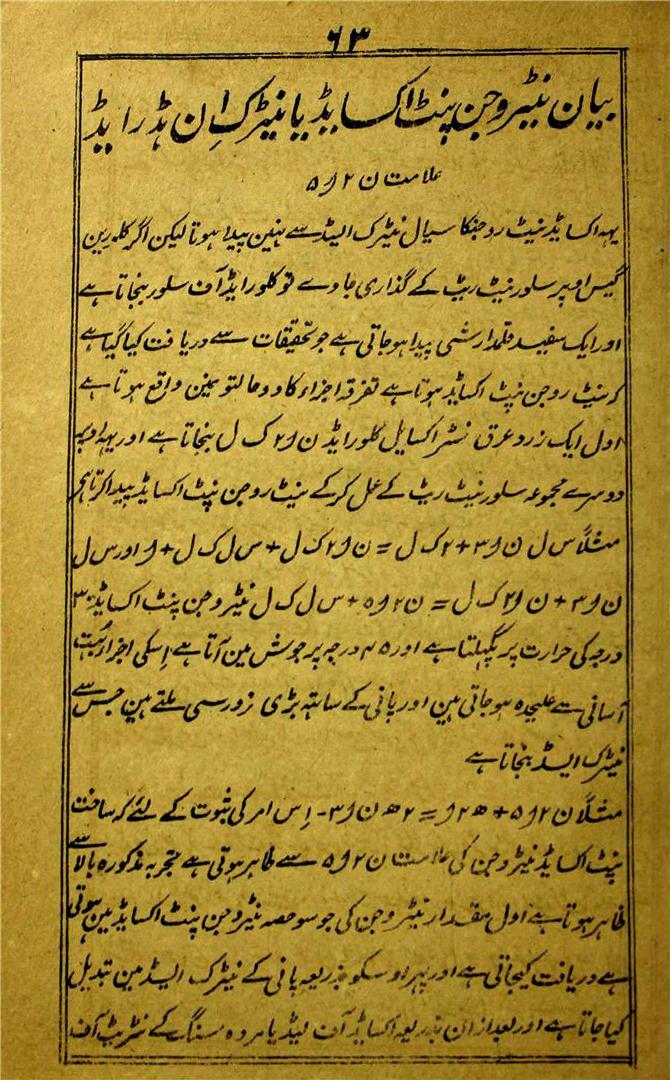 ۶۳
بیان نیٹروجن پنٹ اکسایڈ یا نیٹرک اِن ہڈرایڈ
علامت ن ۲ و ۵
یہہ اکسایڈ نیٹ روجنکا سیال نیٹرک ایسڈ سے نہین پیدا ہوتا لیکن اگر کلورین
گیس اوپر سلور نیٹ ریٹ کے گذاری جاوے تو کلورایڈ آف سلور بنجاتا ہے
اور ایک سفید قلمدار شی پیدا ہو جاتی ہے جو تحقیقات سے دریافت کیا گیا ہے
کہ نیٹ روجن پنٹ اکسایڈ ہوتا ہے تفرقہ اجزاء کا دو حالتو نمین واقع ہوتا ہے
اول ایک زرد عرق نٹر اکسایل کلورایڈ ن و ۲ ک ل بنجاتا ہے اور یہہ اوپر
دوسرے مجموعہ سلور نیٹ ریٹ کے عمل کرکے نیٹ روجن پنٹ اکسایڈ پیدا کرتا ہی
مثلاً س ل ن و ۳ + ۲ ک ل = ن و ۲ ک ل + س ل ک ل + و اور س ل
ن و ۳ + ن و ۲ ک ل = ن ۲ و ۵ + س ل ک ل نیٹروجن پنٹ اکسایڈ ۳۰
درجہ کی حرارت پر پگہلتا ہے اور ۴۵ درجہ پر جوش مین آتا ہے اِسکی اجزا بہت
آسانی سے علیحدہ ہو جاتی ہین اور پانی کے ساتہہ بڑی زور سی ملتے ہین جس سے
نیٹرک ایسڈ بنجاتا ہے
مثلاً ن ۲ و ۵ + ھ ۲ و = ۲ ھ ن و ۳ - اِس امر کی ثبوت کے لئے کہ ساخت
پنٹ اکسایڈ نیٹروجن کی علامت ن ۲ و ۵ سے ظاہر ہوتی ہے تجربہ مذکورہ بالا سے
ظاہر ہوتا ہے اول مقدار نیٹروجن کی جو سو حصہ نیٹروجن پنٹ اکسایڈ مین ہوتی
ہے دریافت کیجاتی ہے اور پہر اوسکو بذریعہ پانی کے نیٹرک ایسڈ مین تبدیل
کیا جاتا ہے اور بعد ازان بذریعہ اکسایڈ آف لیڈ یا مردہ سنگ کے نٹریٹ آف